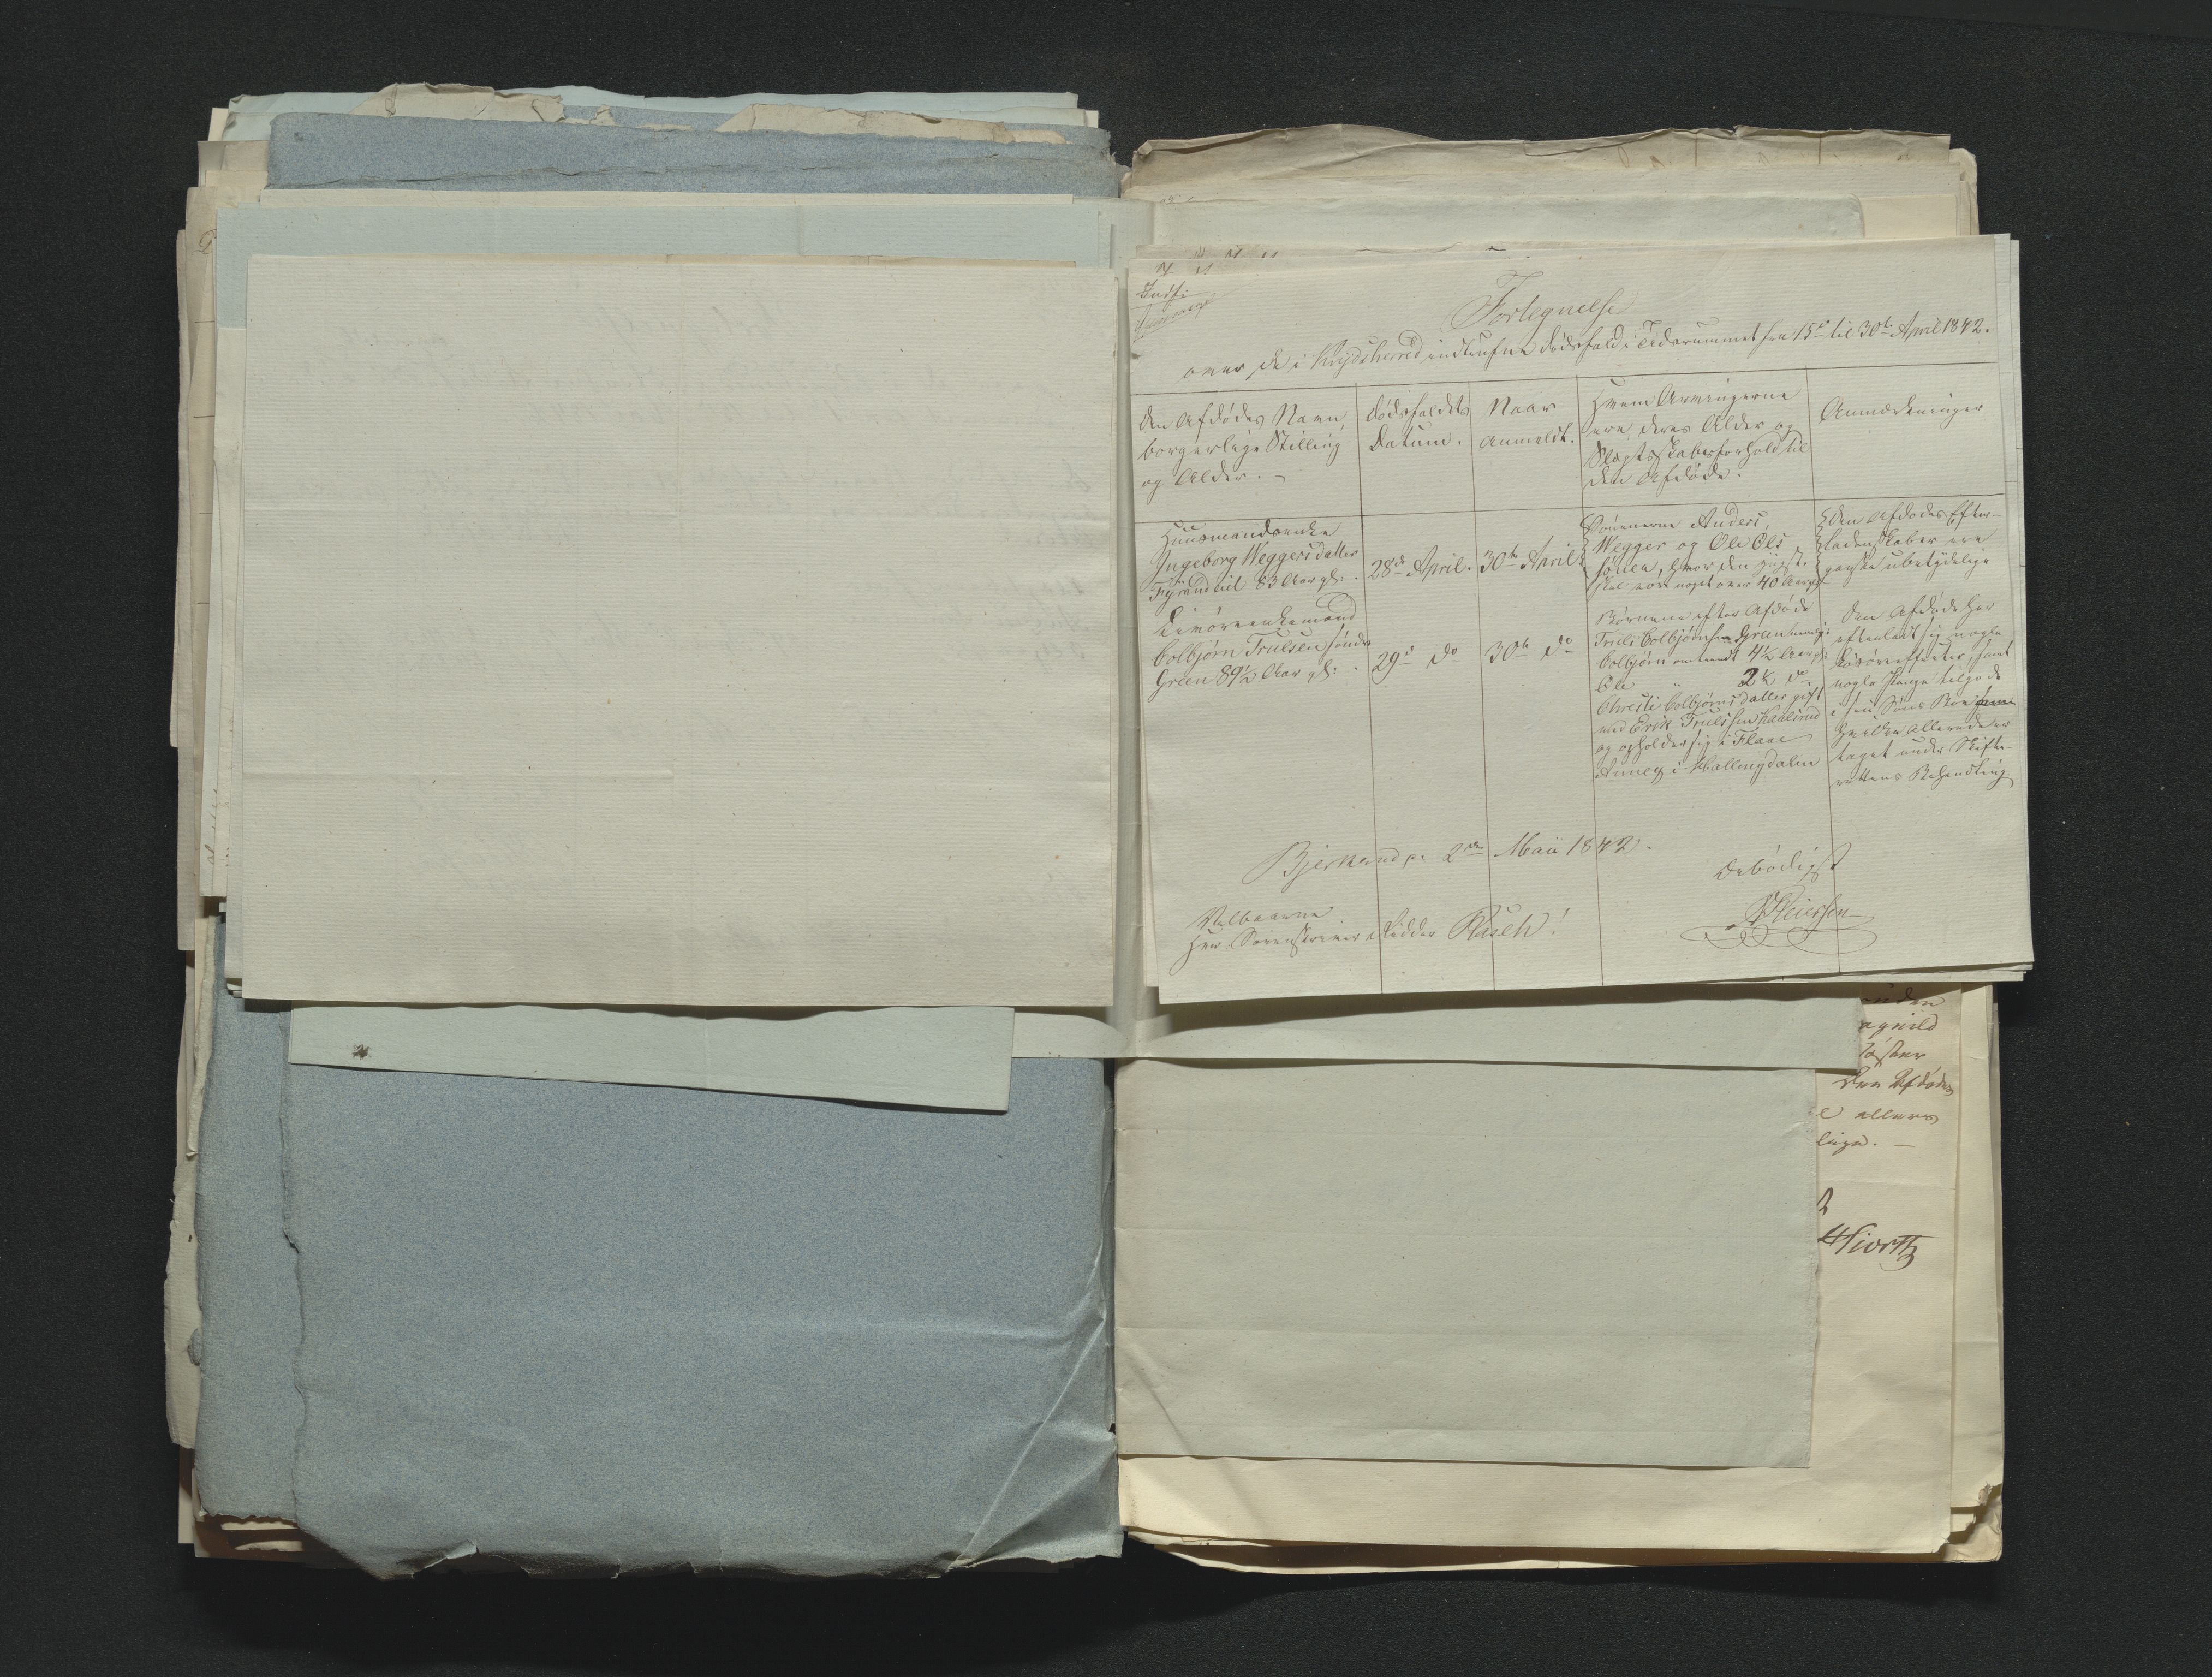 Fortegnelse
over de i Krydsherred indtrufne Dødsfald i Tidsrummet fra 15de til 30te April 1842.
Den Afdødes Navn,
borgerlige Stilling
og Alder. –
Dødsfaldets
Datum.
Naar
anmeldt.
Hvem Arvingerne
ere, deres Alder og
Slægtskabsforhold til
den Afdøde.
Anmærkninger
Huusmandsenke
Ingeborg Weggersdatter
83 Aar gl:
28de April.
30te April
Sønnerne Anders,
Wegger og Ole Ols
sønner, hvor den yngste
skal være noget over 40 Aar gl
Den Afdødes Efter-
ladenskaber ere
ganske ubetydelige
Colbjørn Trulsen søndre
Green 89½ Aar gl:
29de do
30te do
Børnene efter Afdøde
Truls Colbjørnsen Green
Colbjørn omtrendt 4½ Aar gl:
Ole " 2½ do
Christi Colbjørnsdatter gift
med Erik Trulssen
og opholder sig i Flaae
Annex i Hallingdalen
Den Afdøde har
efterladt sig nogle
Løsøreeffecter, samt
nogle Penge tilgode
i sin Søns Boe
hvilke allerede er
taget under Skifte-
rettens Behandling
2den Maii 1842.
Ærbødigst
Velbaarne
Herr Sorenskriver & Ridder Rasch!
unden
agnild
Den Afdødes
ellers
lige. –
Hiorth